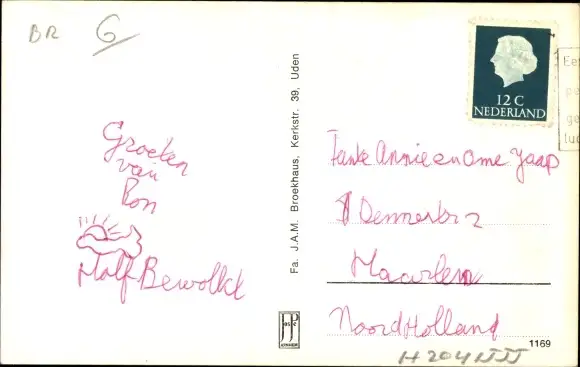 BR 6
Groeten
van
Ron
Half Bewolkt
Fa. J.A.M. Broekhaus, Kerkstr. 39, Uden
12 C
NEDERLAND
Tante Annie en Ome Jaap
Haarlem
Noord Holland
1169